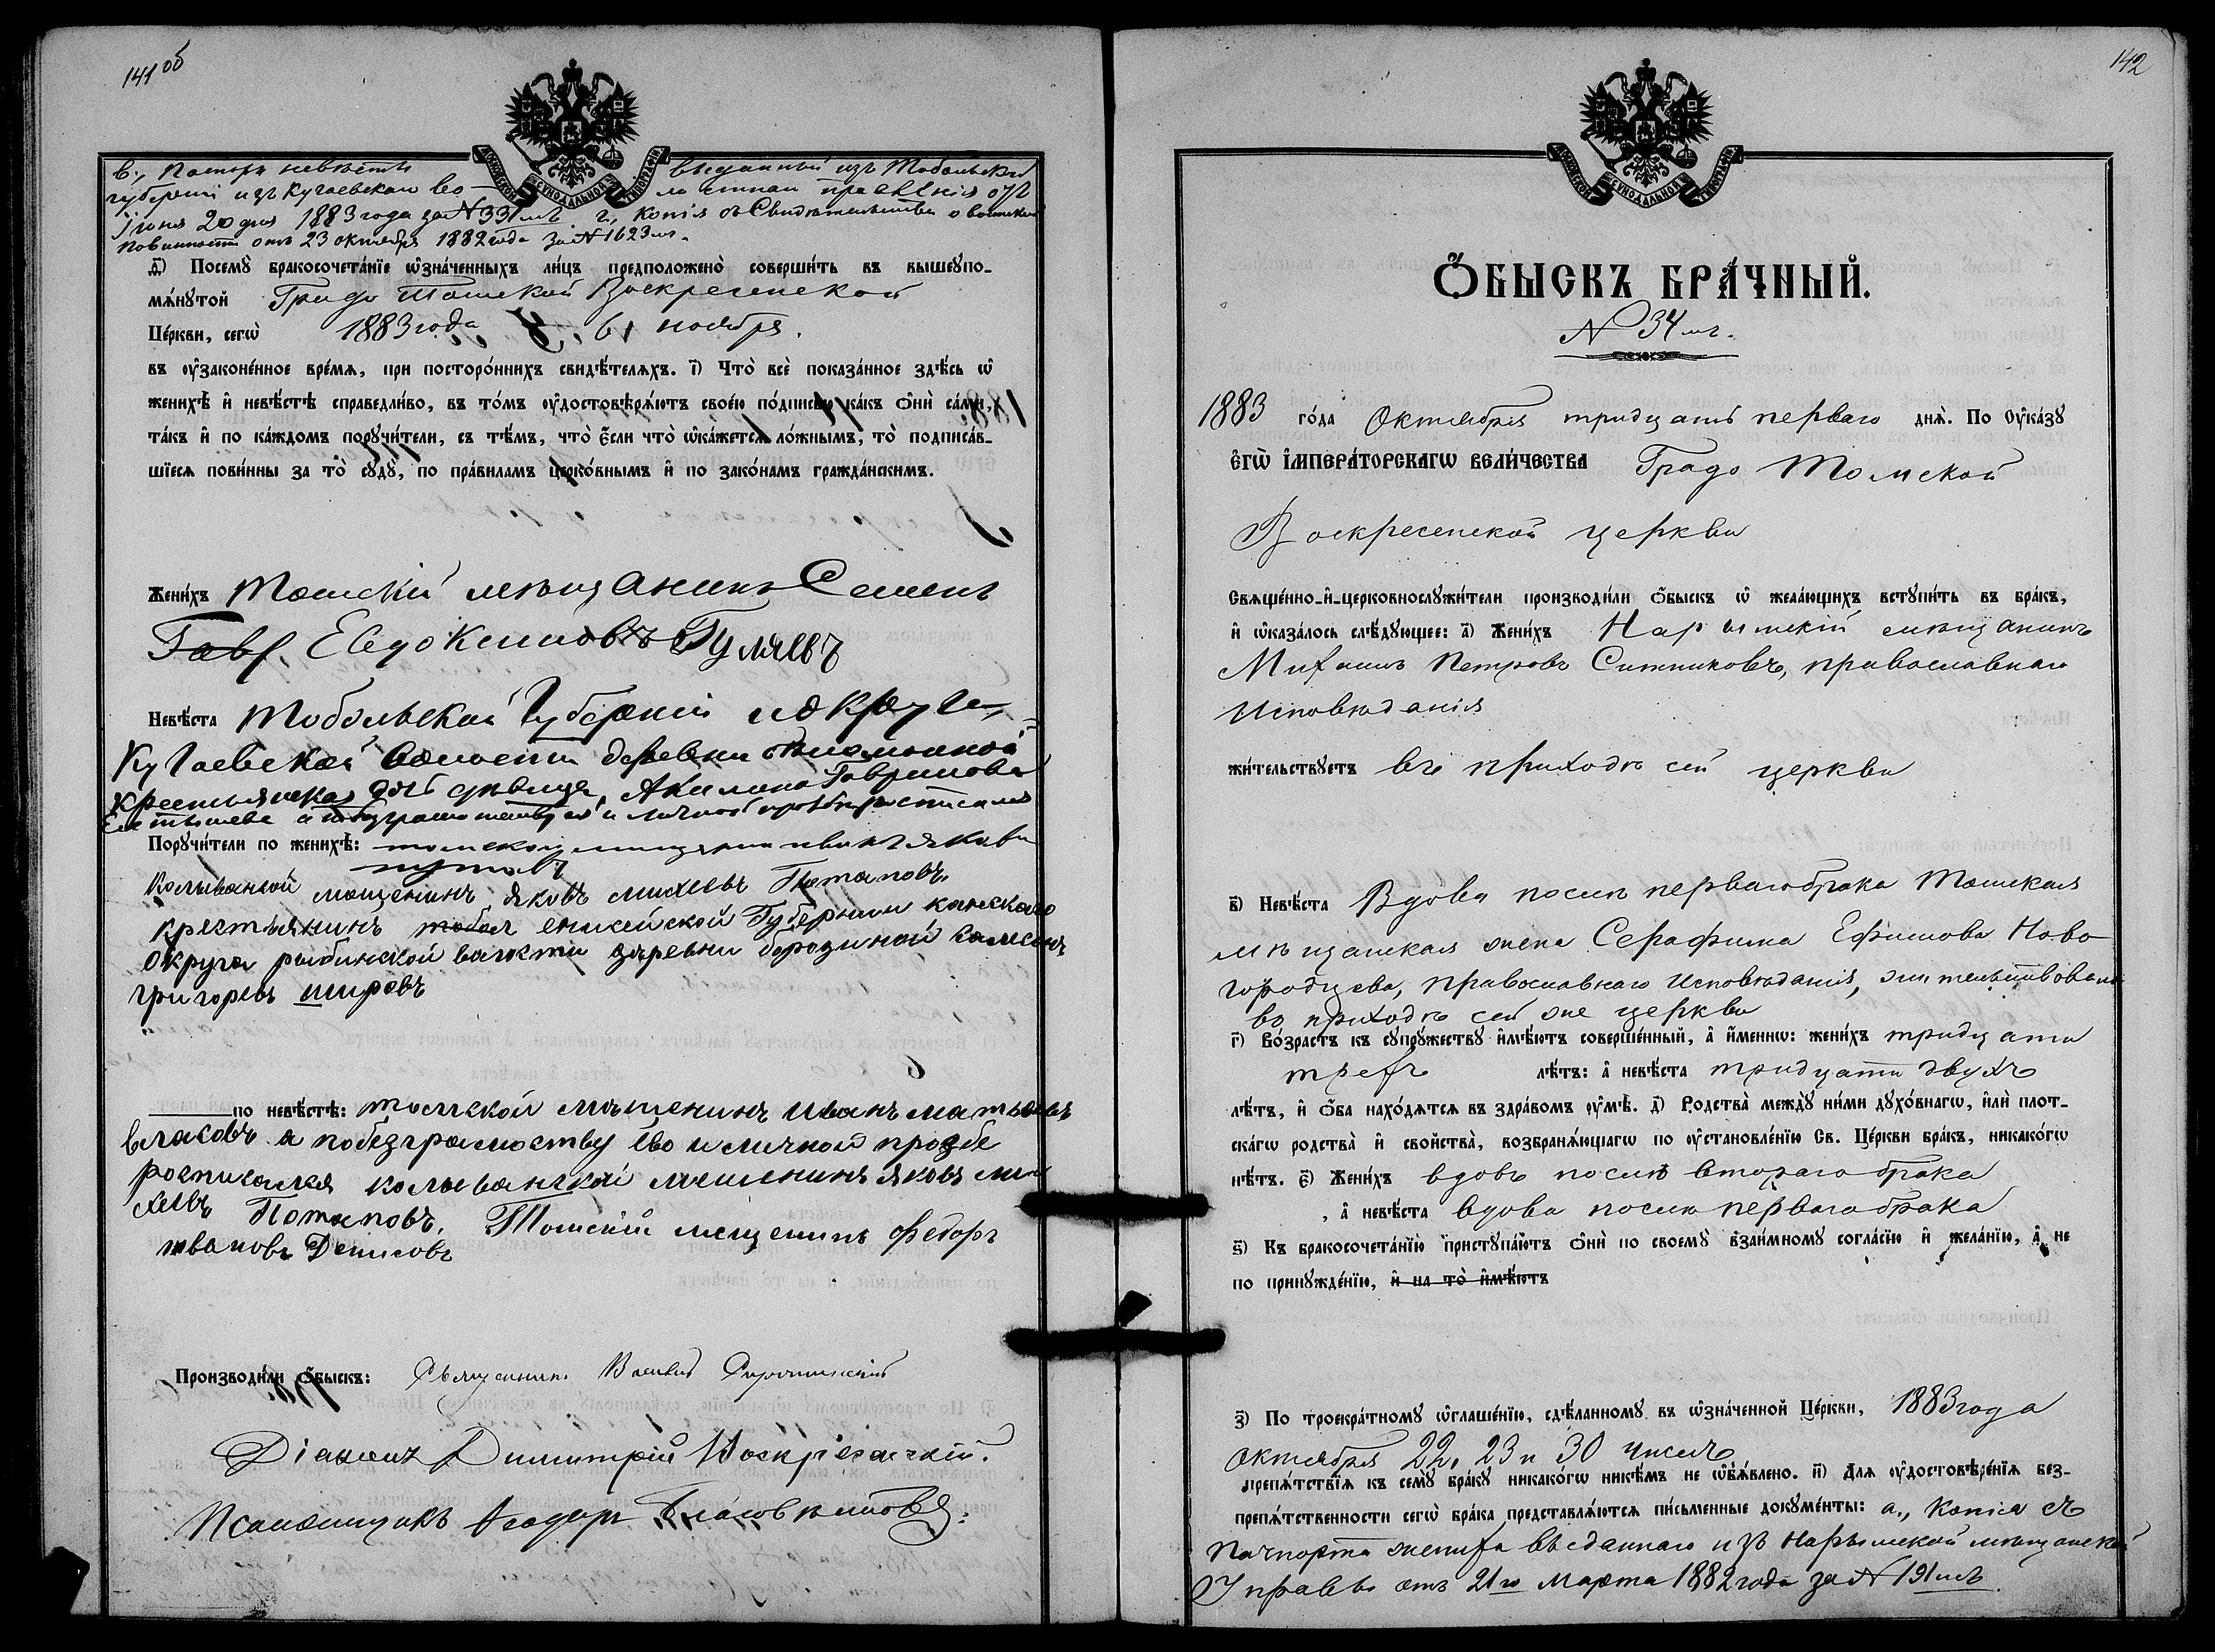 141об
в., Паспортъ невѣсты выданный изъ Тобольской
губерніи изъ Кугаевскаго волостнаго правленія отъ
Іюня 20 дня 1883 года за № 331мъ г., копія съ Свидѣтельства о воинской
повинности отъ 23 октября 1882 года за № 1623мъ.
МОСКОВСКОЙ СѴНОДАЛЬНОЙ ТИПОГРАФІИ
д҃) Посемꙋ̀ бракосочета́нїе ѡ҆зна́ченныхъ ли́цъ предположено̀ соверши́ть въ вышеꙋпо-
мѧ́нꙋтой Градо Томской Воскресенской
Це́ркви, сегѡ̀ 1883 года 6 ноября.
въ ᲂу҆зако́ненное вре́мѧ, при посторо́ннихъ свидѣ́телѧхъ. і҃) Что̀ всѐ пока́занное здѣ́сь ѡ҆
женихѣ̀ и҆ невѣ́стѣ справедли́во, въ то́мъ ᲂу҆достовѣрѧ́ютъ свое́ю по́дписью ка́къ ѻ҆нѝ са́ми,
та́къ и҆ по ка́ждомъ порꙋчи́тели, съ тѣ́мъ, что̀ є҆́сли что̀ ѡ҆ка́жетсѧ ло́жнымъ, то̀ подписа́в-
шїесѧ пови́нны за то̀ сꙋдꙋ̀, по пра́виламъ церко́внымъ и҆ по зако́намъ гражда́нскимъ.
Жени́хъ Томскій мѣщанинъ Семенъ
Гавр. Евдокимовъ Гуляевъ
Невѣ́ста Тобольской Губерніи и округа,
Кугаевской волости деревни
крестьянская дочь дѣвица, Акилина Гаврилова
личной
Порꙋчи́тели по женихѣ̀: томской мищянин иван якавл
Колыванской мещенинъ Яковъ михеевъ Потаповъ.
крестьянинъ тобол енисейской Губернии канскаго
округа рыбинской валости деревни бородиной
григоревъ шировъ
по невѣ́стѣ: томской мѣщенинъ Иванъ матвеевъ
власовъ а побезграмоству ево и личной прозбе
росписался колыванской мещенинъ яковъ ми
хеевъ Потаповъ. Томскій мещенинъ Федоръ
ивановъ Денисовъ
Производи́ли ѻ҆́быскъ: Священникъ Василій Сиротинскій
Діаконъ Димитрій Воскресенскій.
Псаломщикъ Ѳеодоръ
142
МОСКОВСКОЙ СѴНОДАЛЬНОЙ ТИПОГРАФІИ
Ѻ҆́БЫСКЪ БРА́ЧНЫЙ.
№ 34мъ.
1883 го́да Октября тридцать перваго днѧ̀. По Оу҆ка́зꙋ
Є҆гѡ̀ І҆мпера́торскагѡ вели́чества Градо Томской
Воскресенской церкви
Свѧще́нно-и҆-церковнослꙋжи́тели производи́ли ѻ҆́быскъ ѡ҆ жела́ющихъ встꙋпи́ть въ бра́къ,
и҆ ѡ҆каза́лось слѣ́дꙋющее: а҃) Жени́хъ Нарымскій мѣщанинъ
Михаилъ Петровъ Ситниковъ, православнаго
исповѣданія
жи́тельствꙋетъ въ приходѣ сей церкви
в҃) Невѣ́ста Вдова послѣ перваго брака Томская
мѣщанская жена Серафима Ефимова Ново-
городцева, православнаго исповѣданія, жительствовала
въ приходѣ сей же церкви
г҃) Во́зрастъ къ сꙋпрꙋ́жествꙋ и҆мѣ́ютъ соверше́нный, а҆ и҆́меннѡ: жени́хъ тридцати
трехъ лѣ́тъ: а҆ невѣ́ста тридцати двухъ
лѣ́тъ, и҆ ѻ҆́ба нахо́дѧтсѧ въ здра́вомъ ᲂу҆мѣ̀. д҃) Родства̀ междꙋ̀ ни́ми дꙋхо́внагѡ, и҆лѝ плот-
ска́гѡ родства̀ и҆ сво́йства, возбранѧ́ющагѡ по ᲂу҆становле́нїю Св. Це́ркви бра́къ, никако́гѡ
нѣ́тъ. є҃) Жени́хъ вдовъ послѣ втораго брака
, а҆ невѣ́ста вдова послѣ перваго брака
ѕ҃) Къ бракосочета́нїю пристꙋпа́ютъ ѻ҆нѝ по своемꙋ̀ взаи́мномꙋ согла́сїю и҆ жела́нїю, а҆ не
по принꙋжде́нїю, и҆ на то̀ и҆мѣ́ютъ
з҃) По троекра́тномꙋ ѡ҆глаше́нїю, сдѣ́ланномꙋ въ ѡ҆зна́ченной Це́ркви, 1883 года
октября 22, 23 и 30 числъ
препѧ́тствїѧ къ семꙋ̀ бра́кꙋ никако́гѡ никѣ́мъ не ѡ҆б̾ѧ́влено. и҃) Длѧ ᲂу҆достовѣре́нїѧ без-
препѧ́тственности сегѡ̀ бра́ка представлѧ́ютсѧ пи́сьменные докꙋме́нты: а., копія съ
Паспорта жениха выданнаго изъ Нарымской мѣщанской
Управы отъ 21го Марта 1882 года за № 191мъ.